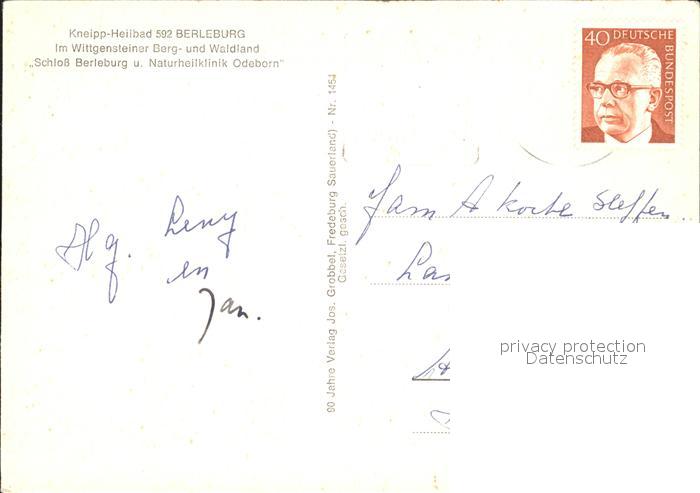 Kneipp-Heilbad 592 BERLEBURG
Im Wittgensteiner Berg- und Waldland
„Schloß Berleburg u. Naturheilklinik Odeborn"
90 Jahre Verlag Jos. Grobbel, Fredeburg Sauerland) - Nr. 1454
Gesetzl. gesch.
40 DEUTSCHE
BUNDESPOST
Fam A
Hg. Leny
en
Jan.
privacy protection
Datenschutz